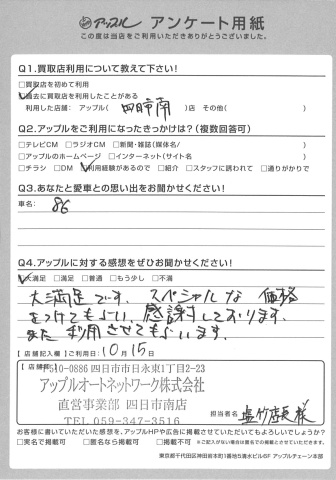 アップル アンケート用紙
この度は当店をご利用いただきありがとうございました。
Q1.買取店利用について教えて下さい!
□買取店を初めて利用
☑過去に買取店を利用したことがある
利用した店舗: アップル( 四日市南 )店 その他( )
Q2.アップルをご利用になったきっかけは?(複数回答可)
□テレビCM □ラジオCM □新聞・雑誌(媒体名/ )
□アップルのホームページ □インターネット(サイト名 )
□チラシ □DM ☑利用経験があるので □紹介 □スタッフに誘われて □通りがかりで
Q3.あなたと愛車との思い出をお聞かせください!
車名: 86
Q4.アップルに対する感想をぜひお聞かせください!
☑大満足 □満足 □普通 □もう少し □不満
大満足です。スペシャルな価格
をつけてもらい、感謝しております。
また利用させてもらいます。
【店舗記入欄】ご利用日: 10月15日
【店舗欄】
〒510-0886 四日市市日永東1丁目2-23
アップルオートネットワーク株式会社
直営事業部 四日市南店
TEL.059-347-3516
担当者名 塩竹店長様
お客様に書いていただいた感想を、アップルHPや広告に掲載させていただいてもよろしいでしょうか?
□実名で掲載可 □匿名なら掲載可 □掲載不可 ※ご記入がない場合は匿名での掲載とさせていただきます。
東京都千代田区神田前本町1番地5清水ビル6F アップルチェーン本部